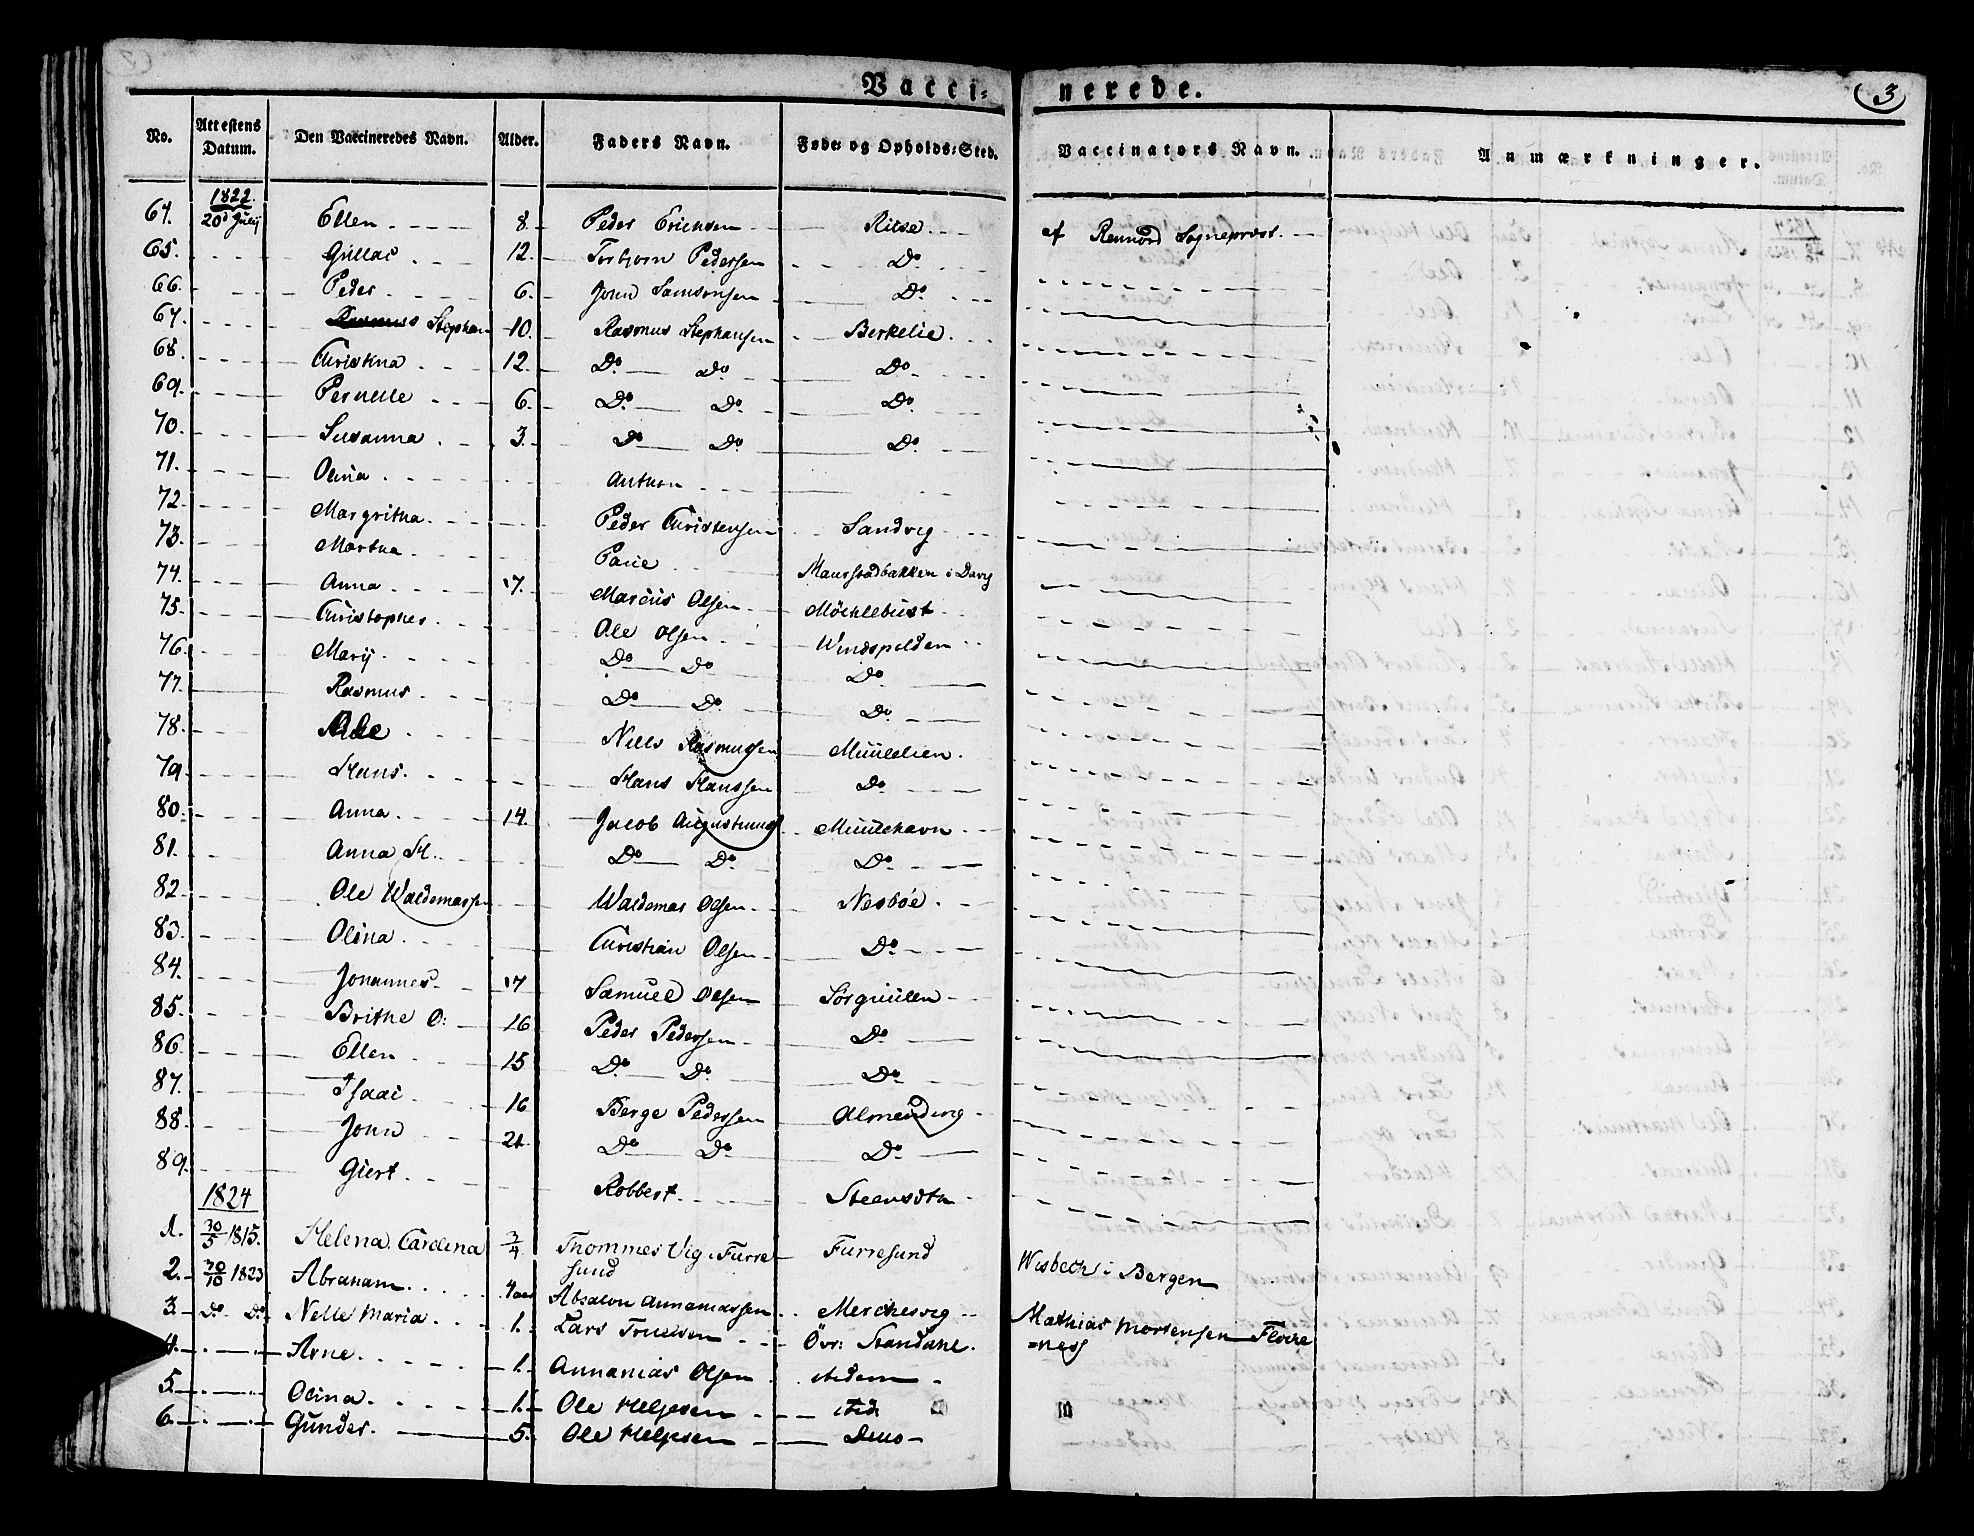 Vacci-nerede. 3
No. Attestens Datum. Den Vaccineredes Navn. Alder. Faders Navn. Føde- og Opholds-Sted. Vaccinators Navn. Anmærkninger.
1822.
64. 20d Julij Ellen 8. Peder Erichsen Rilse af Rennord Sogneprest.
65. Gullac 12. Torbjorn Pedersen Do
66. Peder 6. John Samsonsen Do
67. Rasmus Stephan 10. Rasmus Stephansen Berkelie
68. Christina 12. Do Do Do
69. Pernelle 6. Do Do Do
70. Susanna 3. Do Do Do
71. Olina Anthon
72. Margritha Peder Christensen Sandvig
73. Martha Paul Maurstadbakken i Davig
74. Anna 17. Marcus Olsen Möcklebust
75. Christopher Ole Olsen Windspolden
76. Marij Do Do Do
77. Rasmus Do Do Do
78. Ole Nells Rasmussen Muulelien
79. Hans Hans Hanssen Do
80. Anna 14. Jacob Augustinus Muulehavn
81. Anna H. Do Do Do
82. Ole Waldemarsen Waldemar Olsen Nesböe
83. Olina Christian Olsen Do
84. Johannes 17 Samuel Olsen Sörguulen
85. Brithe O: 16 Peder Pedersen Do
86. Ellen 15 Do Do Do
87. Isaac 16 Berge Pedersen Almending
88. John 21 Do Do Do
89. Giert Robbert Steensöth
1824
1. 30/5 1815. Helena Carolina 3/4 Thommes Vig i Furre Furresund Wisbech i Bergen
sund
2. 30/10 1823 Abraham 4 Absalon Annaniassen Merchesvig Mathias Mortensen Flocke
=nes
3. Do Do Nelle Maria 1. Lars Truelsen Övr: Standahl.
4. Arne 1. Annanias Olsen ibidem
5. Olina 1. Ole Helgesen ibid
6. Gunder 5. Ole Helgesen Dito